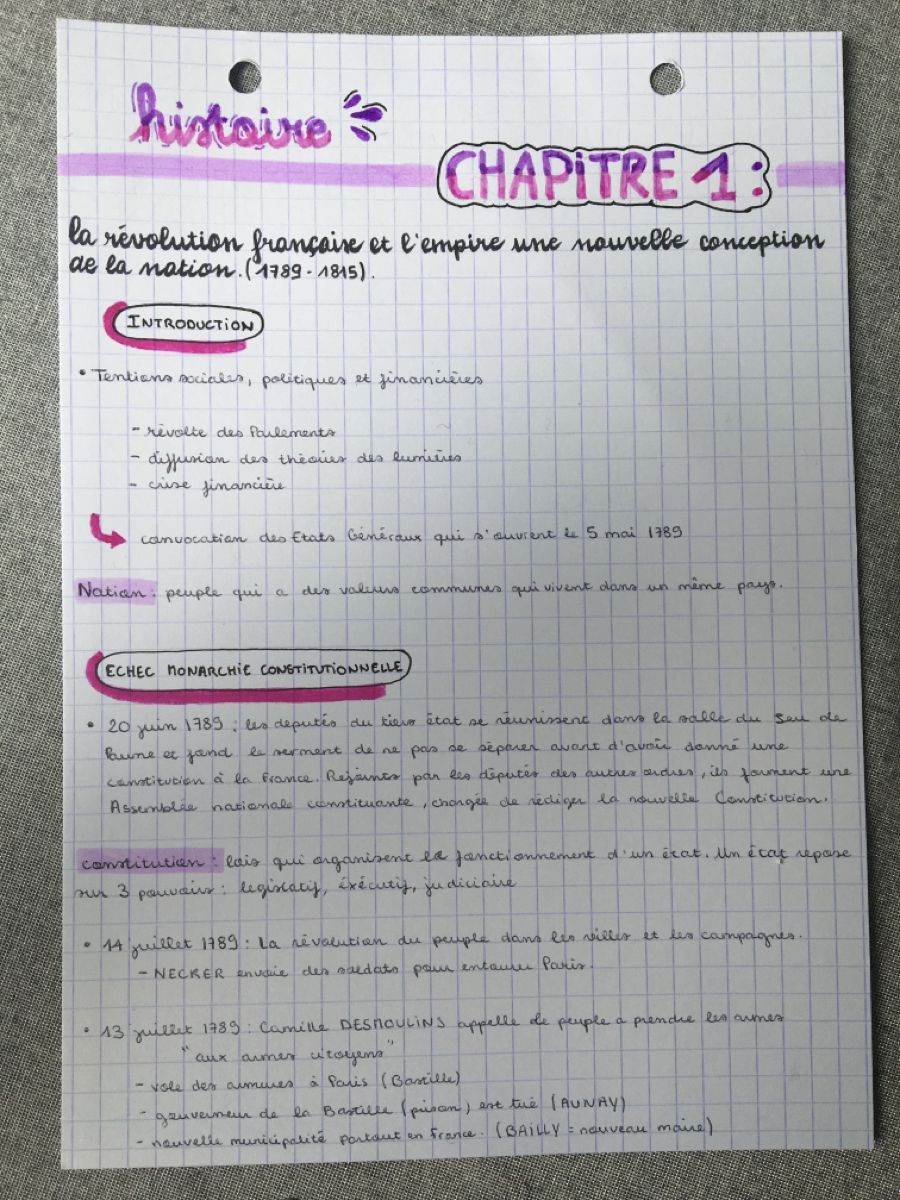 histoire
CHAPiTRE 1 :
la révolution française et l'empire une nouvelle conception
de la nation. (1789 - 1815).
INTRODUCTION
• Tentions sociales, politiques et financières
- révolte des Parlements
- diffusion des théories des lumières
- crise financière
convocation des Etats Généraux qui s'ouvrent le 5 mai 1789
Nation : peuple qui a des valeurs communes qui vivent dans un même pays.
ECHEC MONARCHIE CONSTITUTIONNELLE
• 20 juin 1789 : les députés du tiers état se réunissent dans la salle du Jeu de
Paume et fond le serment de ne pas se séparer avant d'avoir donné une
constitution à la France. Rejoints par les députés des autres ordres, ils forment une
Assemblée nationale constituante, chargée de rédiger la nouvelle Constitution.
constitution : lois qui organisent le fonctionnement d'un état. Un état repose
sur 3 pouvoirs : legislatif, éxécutif, judiciaire
• 14 juillet 1789 : La révolution du peuple dans les villes et les campagnes.
- NECKER envoie des soldats pour entourer Paris.
• 13 juillet 1789 : Camille DESMOULINS appelle de peuple a prendre les armes
"aux armes citoyens"
- vole des armures à Paris (Bastille)
- gouverneur de la Bastille (prison) est tué (AUNAY)
- nouvelle municipalité partout en France. (BAILLY = nouveau maire)